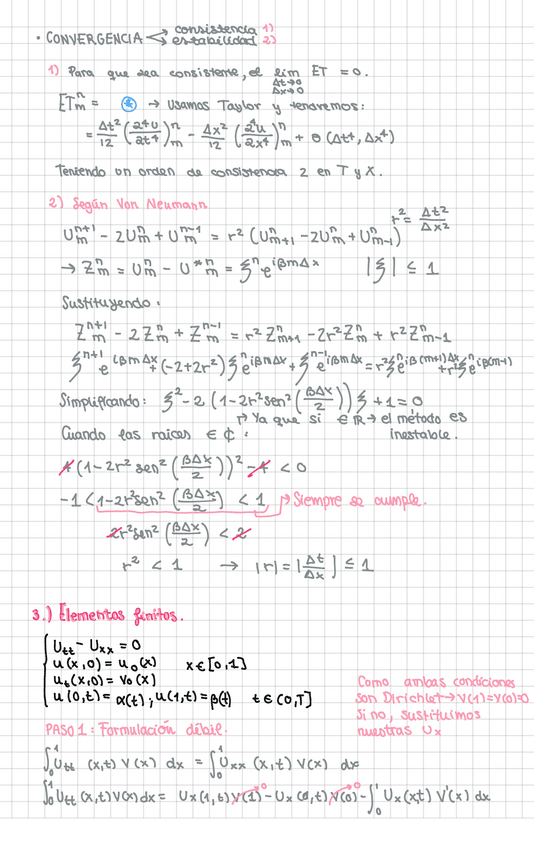 • CONVERGENCIA < consistencia 1)
estabilidad 2)
1) Para que sea consistente, el lim ET = 0.
Δt→0
Δx→0
ETₘⁿ = * → Usamos Taylor y tendremos:
= Δt²/12 (∂⁴u/∂t⁴)ₘⁿ - Δx²/12 (∂⁴u/∂x⁴)ₘⁿ + θ(Δt⁴, Δx⁴)
Teniendo un orden de consistencia 2 en T y X.
2) Según Von Neumann
r² = Δt²/Δx²
Uₘⁿ⁺¹ - 2Uₘⁿ + Uₘⁿ⁻¹ = r² (Uₘ₊₁ⁿ - 2Uₘⁿ + Uₘ₋₁ⁿ)
→ Zₘⁿ = Uₘⁿ - U*ₘⁿ = ξⁿ e^(iβmΔx) |ξ| ≤ 1
Sustituyendo:
Zₘⁿ⁺¹ - 2Zₘⁿ + Zₘⁿ⁻¹ = r²Zₘ₊₁ⁿ - 2r²Zₘⁿ + r²Zₘ₋₁ⁿ
ξⁿ⁺¹ e^(iβmΔx) + (-2+2r²) ξⁿ e^(iβmΔx) + ξⁿ⁻¹ e^(iβmΔx) = r² ξⁿ e^(iβ(m+1)Δx) + r² ξⁿ e^(iβ(m-1)
Simplificando: ξ² - 2 (1 - 2r² sen² (βΔx/2)) ξ + 1 = 0
↱ Ya que si ∈ ℝ → el método es
Cuando las raíces ∈ ₵: inestable.
4 (1 - 2r² sen² (βΔx/2))² - 4 < 0
-1 < 1 - 2r² sen² (βΔx/2) < 1 ↱ Siempre se cumple.
2r² sen² (βΔx/2) < 2
r² < 1 → |r| = |Δt/Δx| ≤ 1
3.) Elementos finitos.
Utt - Uxx = 0
u(x,0) = u₀(x) x ∈ [0,1]
ut(x,0) = v₀(x)
u(0,t) = α(t); u(1,t) = β(t) t ∈ (0,T]
Como ambas condiciones
son Dirichlet → V(1)=V(0)=0
Si no, sustituimos
nuestras Ux
PASO 1: Formulación débil.
∫₀¹ Utt (x,t) V(x) dx = ∫₀¹ Uxx (x,t) V(x) dx
∫₀¹ Utt (x,t) V(x) dx = Ux(1,t) V(1)→0 - Ux(0,t) V(0)→0 - ∫₀¹ Ux(x,t) V'(x) dx